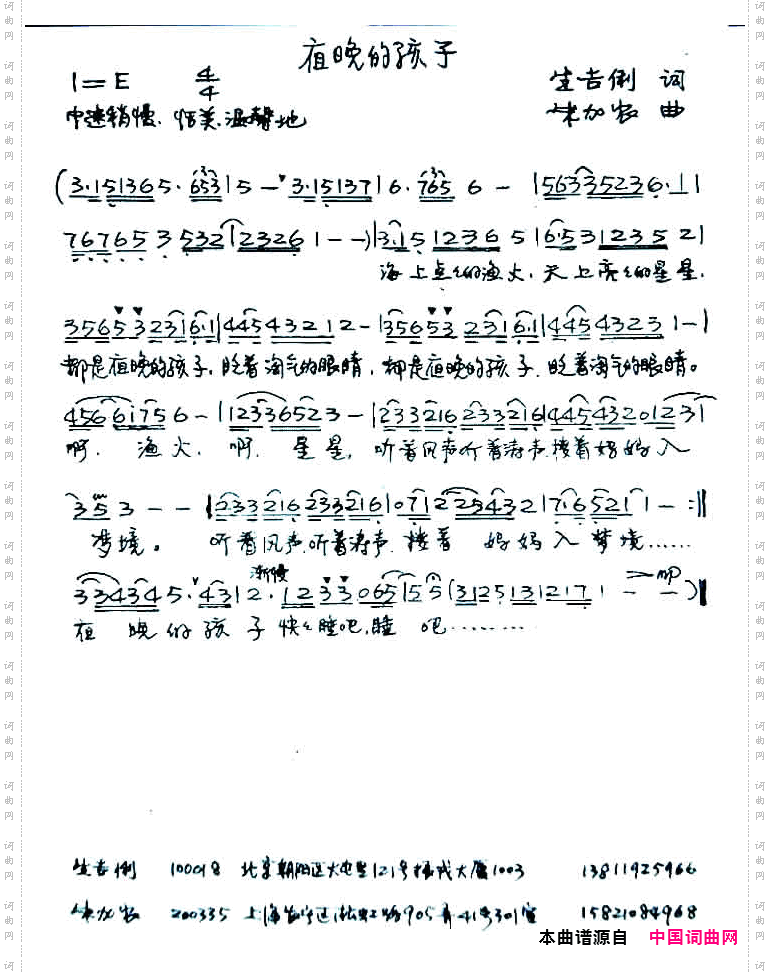 夜晚的孩子
1=E 4/4 生吉俐 词
中速稍慢、恬美、温馨地 朱加农 曲
(3·151365·653|5-3·15137|6·765 6-|56335236·1|
767653 532123261--)|3·15123651|6·5312352|
海上点点的渔火,天上亮亮的星星,
3565323161|44543212-|356532316·1|445432 31-|
都是夜晚的孩子,眨着淘气的眼睛,都是夜晚的孩子、眨着淘气的眼睛。
45661756-|12336523-|233216233216|44543201231|
啊、渔火,啊、星星,听着风声听着涛声搂着妈妈入
353--|233216233216|071225432|7·65211-:||
梦境。 听着风声,听着涛声、搂着 妈妈入梦境……
渐慢 mp
33434 5·431|2·12330655|5(3125131217 1--)||
夜晚的孩子快快睡吧,睡吧………
生吉俐 100018 北京朝阳区大屯里121号 大厦1003 13811925966
朱加农 200335 上海长宁区淞虹路905弄41号301室 15821084968
本曲谱源自 中国词曲网
词曲网